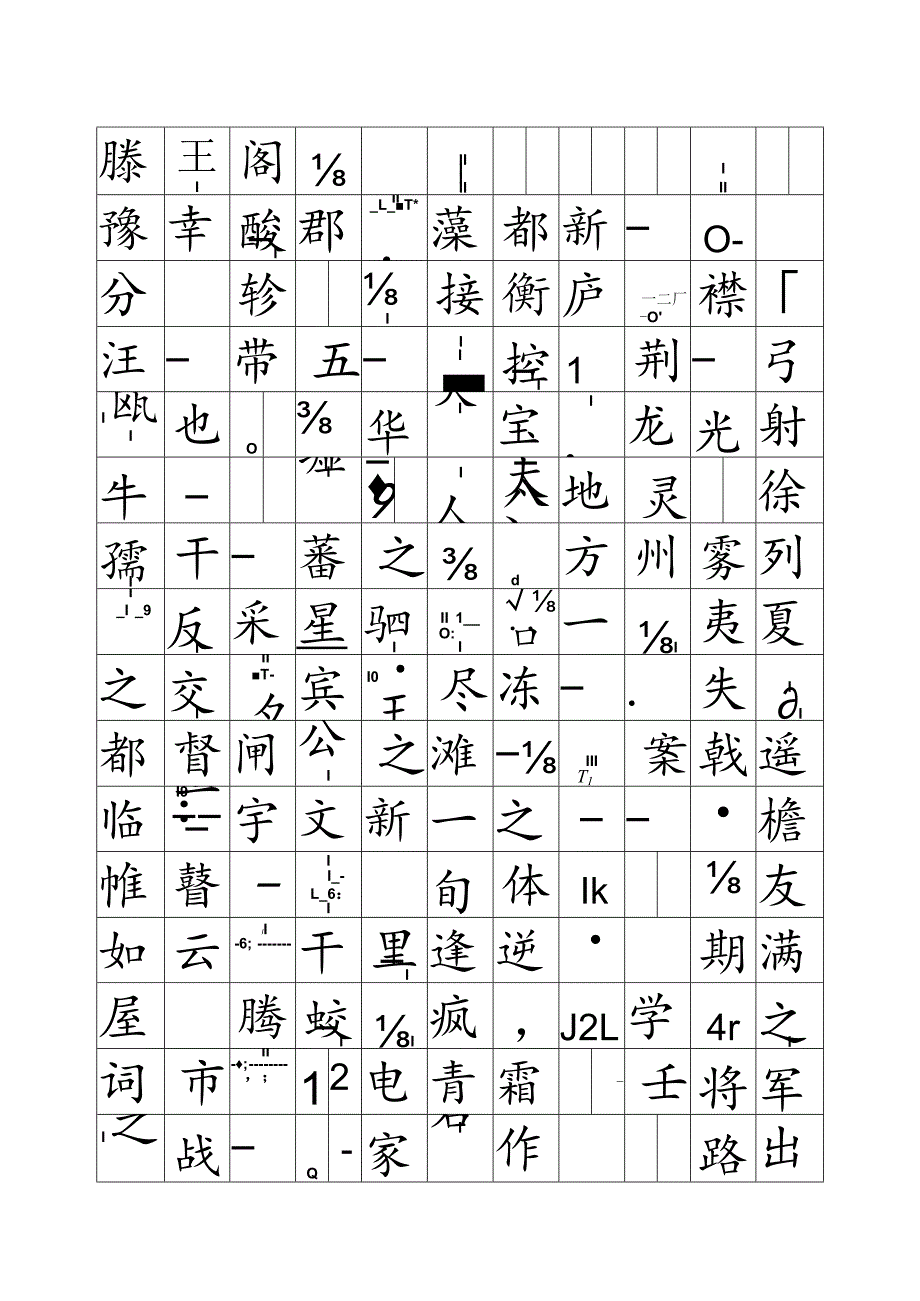 滕 王 阁 ⅛
豫 幸 酸 郡 藻 都 新 – O-
分 轸 ⅛ 接 衡 庐 一二厂 –O' 襟 「
汪 – 带 五 – 控 1 荆 – 弓
瓯 也 。 ⅜ 华 宝 . 龙 光 射
牛 – 墟 人 地 灵 徐
孺 干 – 蕃 之 ⅜ d 方 州 雾 列
_I _9 反 采 星 驷 II 1__ O: √ ⅛ 口 一 ⅛ 夷 夏
之 交 ■T- 夕 宾 I0 • 王 尽 冻 – . 失 ∂
都 督 闸 公 之 滩 –⅛ III T1 案 戟 遥
临 宇 文 新 一 之 – – • 檐
帷 瞽 – L_6: 旬 体 Ik ⅛ 友
如 云 -6; ------- 干 里 逢 逆 • 期 满
屋 腾 蛟 ⅛ 疯 , J2L 学 4r 之
词 市 -♦;-------- , ; 1 2 电 青 霜 – 壬 将 军
之 战 – Q - 家 君 作 路 出